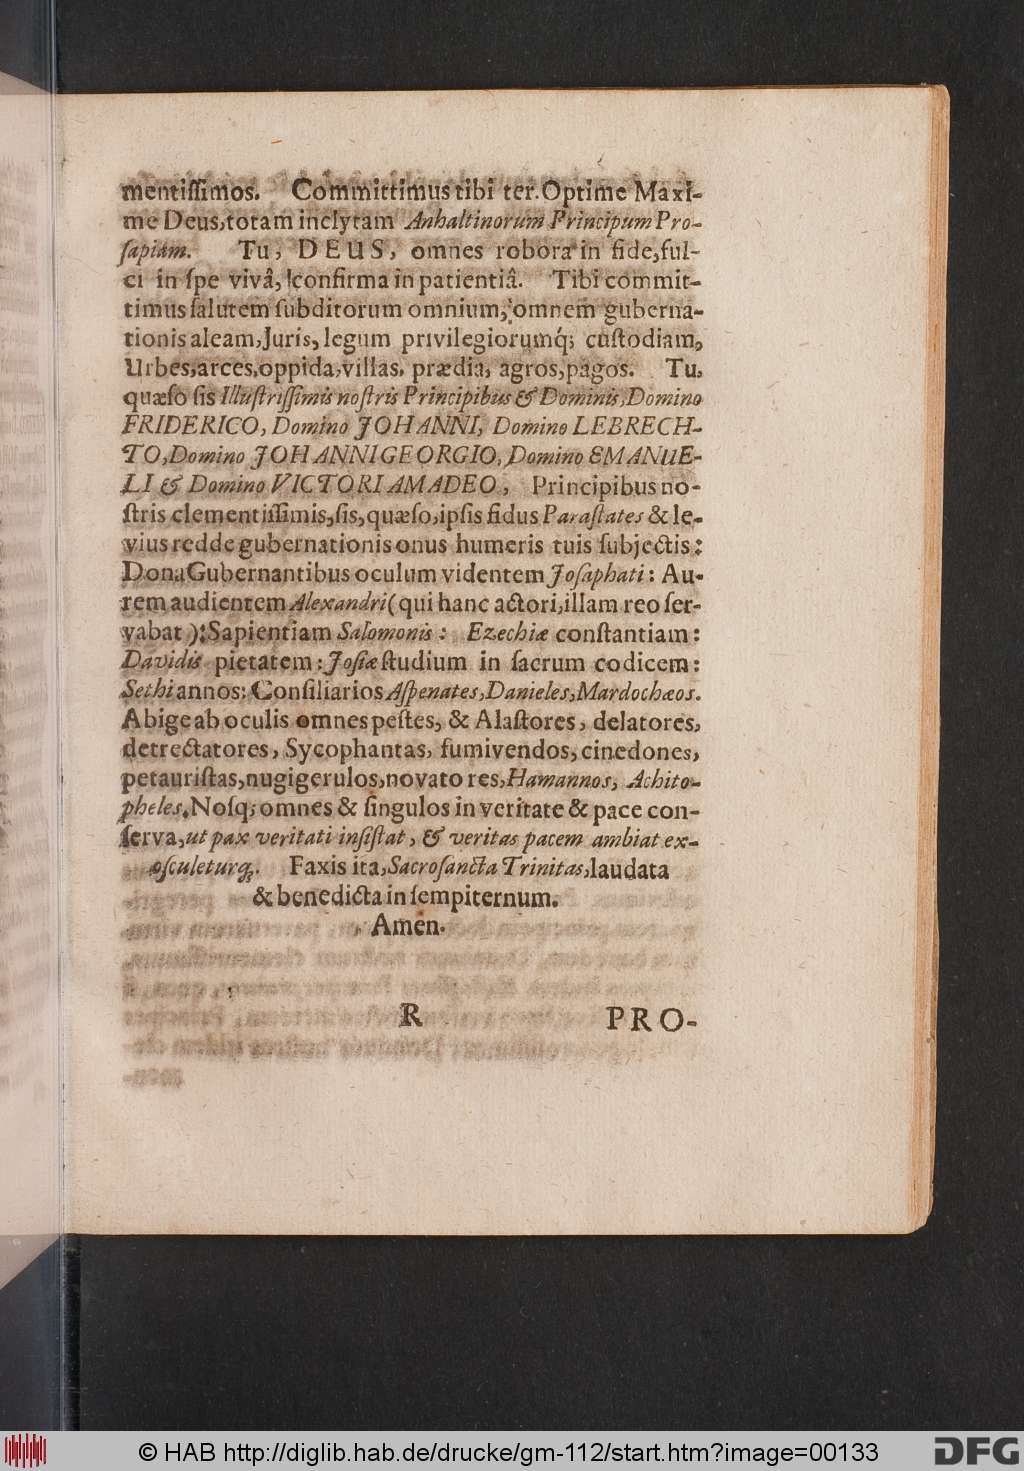 mentiſſimos. Committimus tibi ter. Optime Maxi-
me Deus, totam inclytam Anhaltinorum Principum Pro-
ſapiam. Tu, DEUS, omnes robora in fide, ful-
ci in ſpe vivâ, confirma in patientiâ. Tibi commit-
timus ſalutem ſubditorum omnium, omnem guberna-
tionis aleam, Juris, legum privilegiorumq́; cuſtodiam,
Urbes, arces, oppida, villas, prædia, agros, pagos. Tu,
quæſo ſis Illuſtriſſimis noſtris Principibus & Dominis, Domino
FRIDERICO, Domino JOHANNI, Domino LEBRECH-
TO, Domino JOHANNI GEORGIO, Domino EMANUE-
LI & Domino VICTORI AMADEO, Principibus no-
ſtris clementiſſimis, ſis, quæſo, ipſis fidus Paraſtates & le-
vius redde gubernationis onus humeris tuis ſubjectis:
Dona Gubernantibus oculum videntem Joſaphati: Au-
rem audientem Alexandri (qui hanc actori, illam reo ſer-
vabat): Sapientiam Salomonis: Ezechiæ conſtantiam:
Davidis pietatem: Joſiæ ſtudium in ſacrum codicem:
Sethi annos: Conſiliarios Aſpenates, Danieles, Mardochæos.
Abige ab oculis omnes peſtes, & Alaſtores, delatores,
detrectatores, Sycophantas, fumivendos, cinedones,
petauriſtas, nugigerulos, novatores, Hamannos, Achito-
pheles. Noſq; omnes & ſingulos in veritate & pace con-
ſerva, ut pax veritati inſiſtat, & veritas pacem ambiat ex-
oſculeturq́;. Faxis ita, Sacroſancta Trinitas, laudata
& benedicta in ſempiternum.
Amen.
R PRO-
© HAB http://diglib.hab.de/drucke/gm-112/start.htm?image=00133
DFG